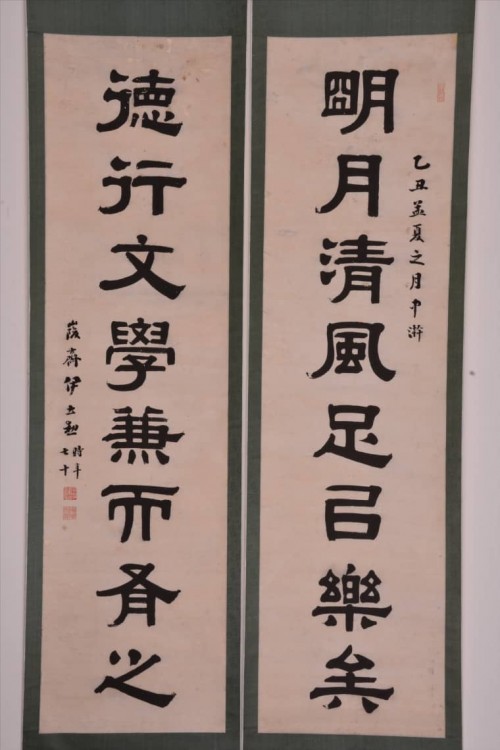 乙丑孟夏之月中澣
朙月清風足㠯樂矣
德行文學兼而有之
峻齋伊立勳時年七十